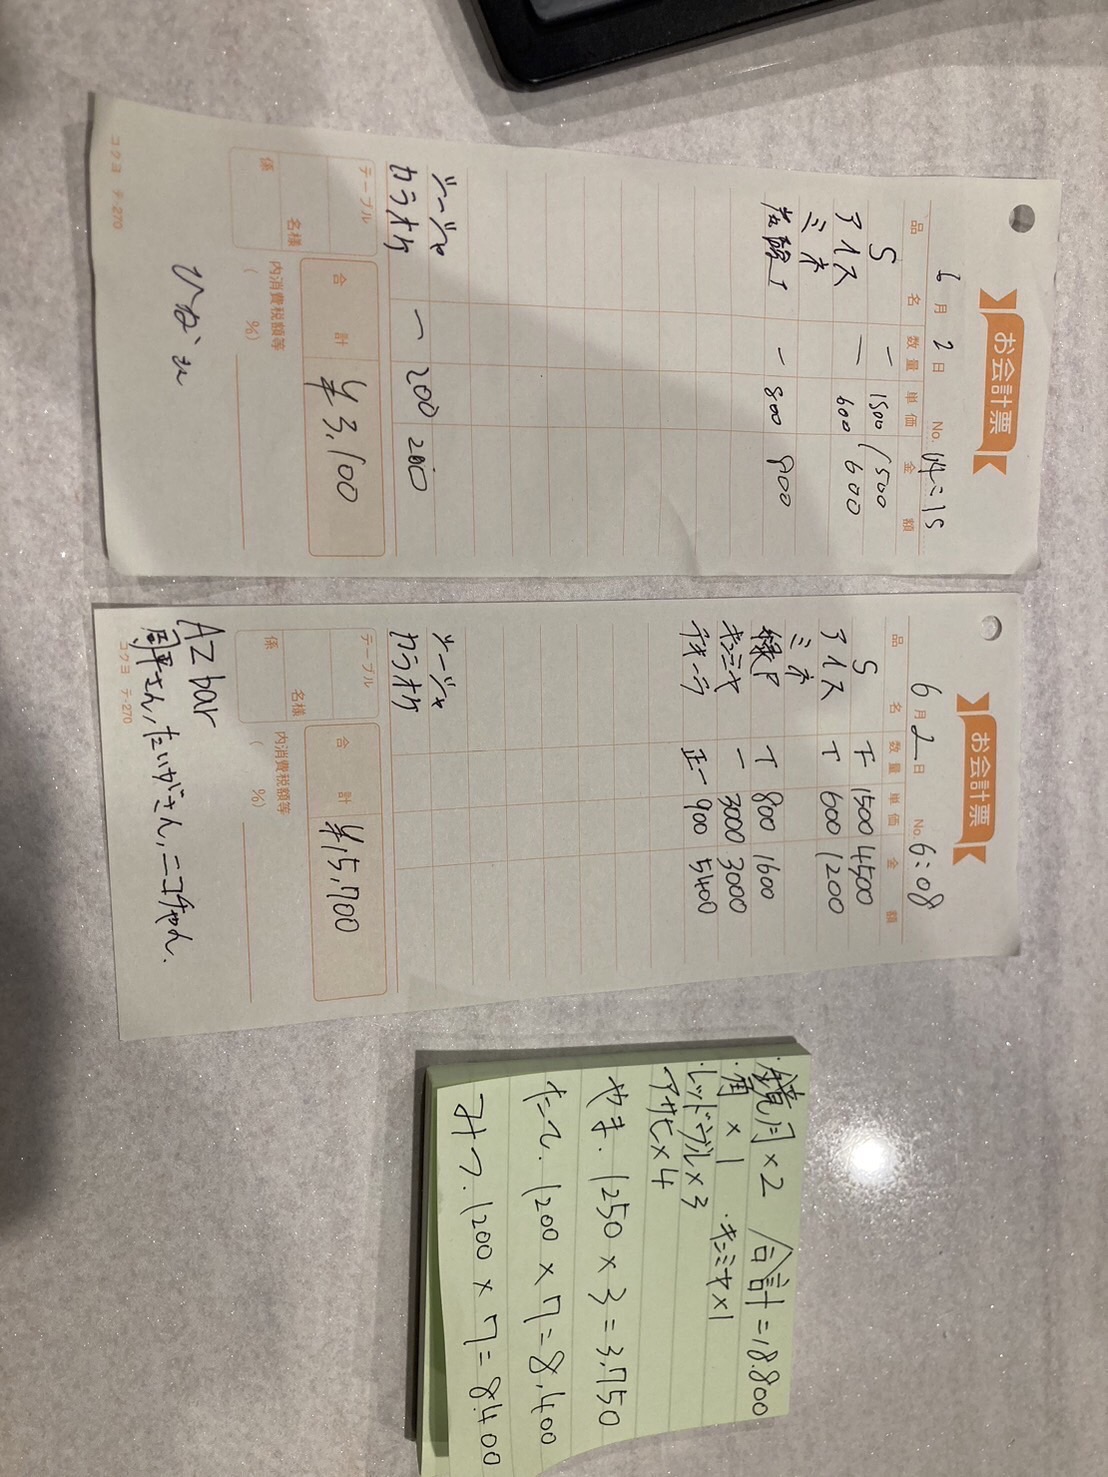 お会計票
6月2日 No. 04:15
品名 数量 単価 金額
S 一 1500 1500
アイス 一 600 600
ミネ
岩酸I 一 800 800
ソージャ
カラオケ 一 200 200
テーブル 名様 係
合計 ¥3,100
内消費税額等 ( %)
ひなせ
コクヨ テ-270
お会計票
6月2日 No. 6:08
品名 数量 単価 金額
S 下 1500 4500
アイス T 600 1200
ミネ
緑P T 800 1600
キンミヤ 一 3000 3000
テキーラ 正一 900 5400
ソージャ
カラオケ
テーブル 名様 係
合計 ¥15,700
内消費税額等 ( %)
AZ bar
さん,たいがさん,ニコちゃん.
コクヨ テ-270
・鏡月×2 合計=18.800
・角×1 ・キンミヤ×1
・レッドブル×3
アサヒ×4
やま. 1250×3=3,750
たて. 1200×7=8,400
みつ. 1200×7=8,400